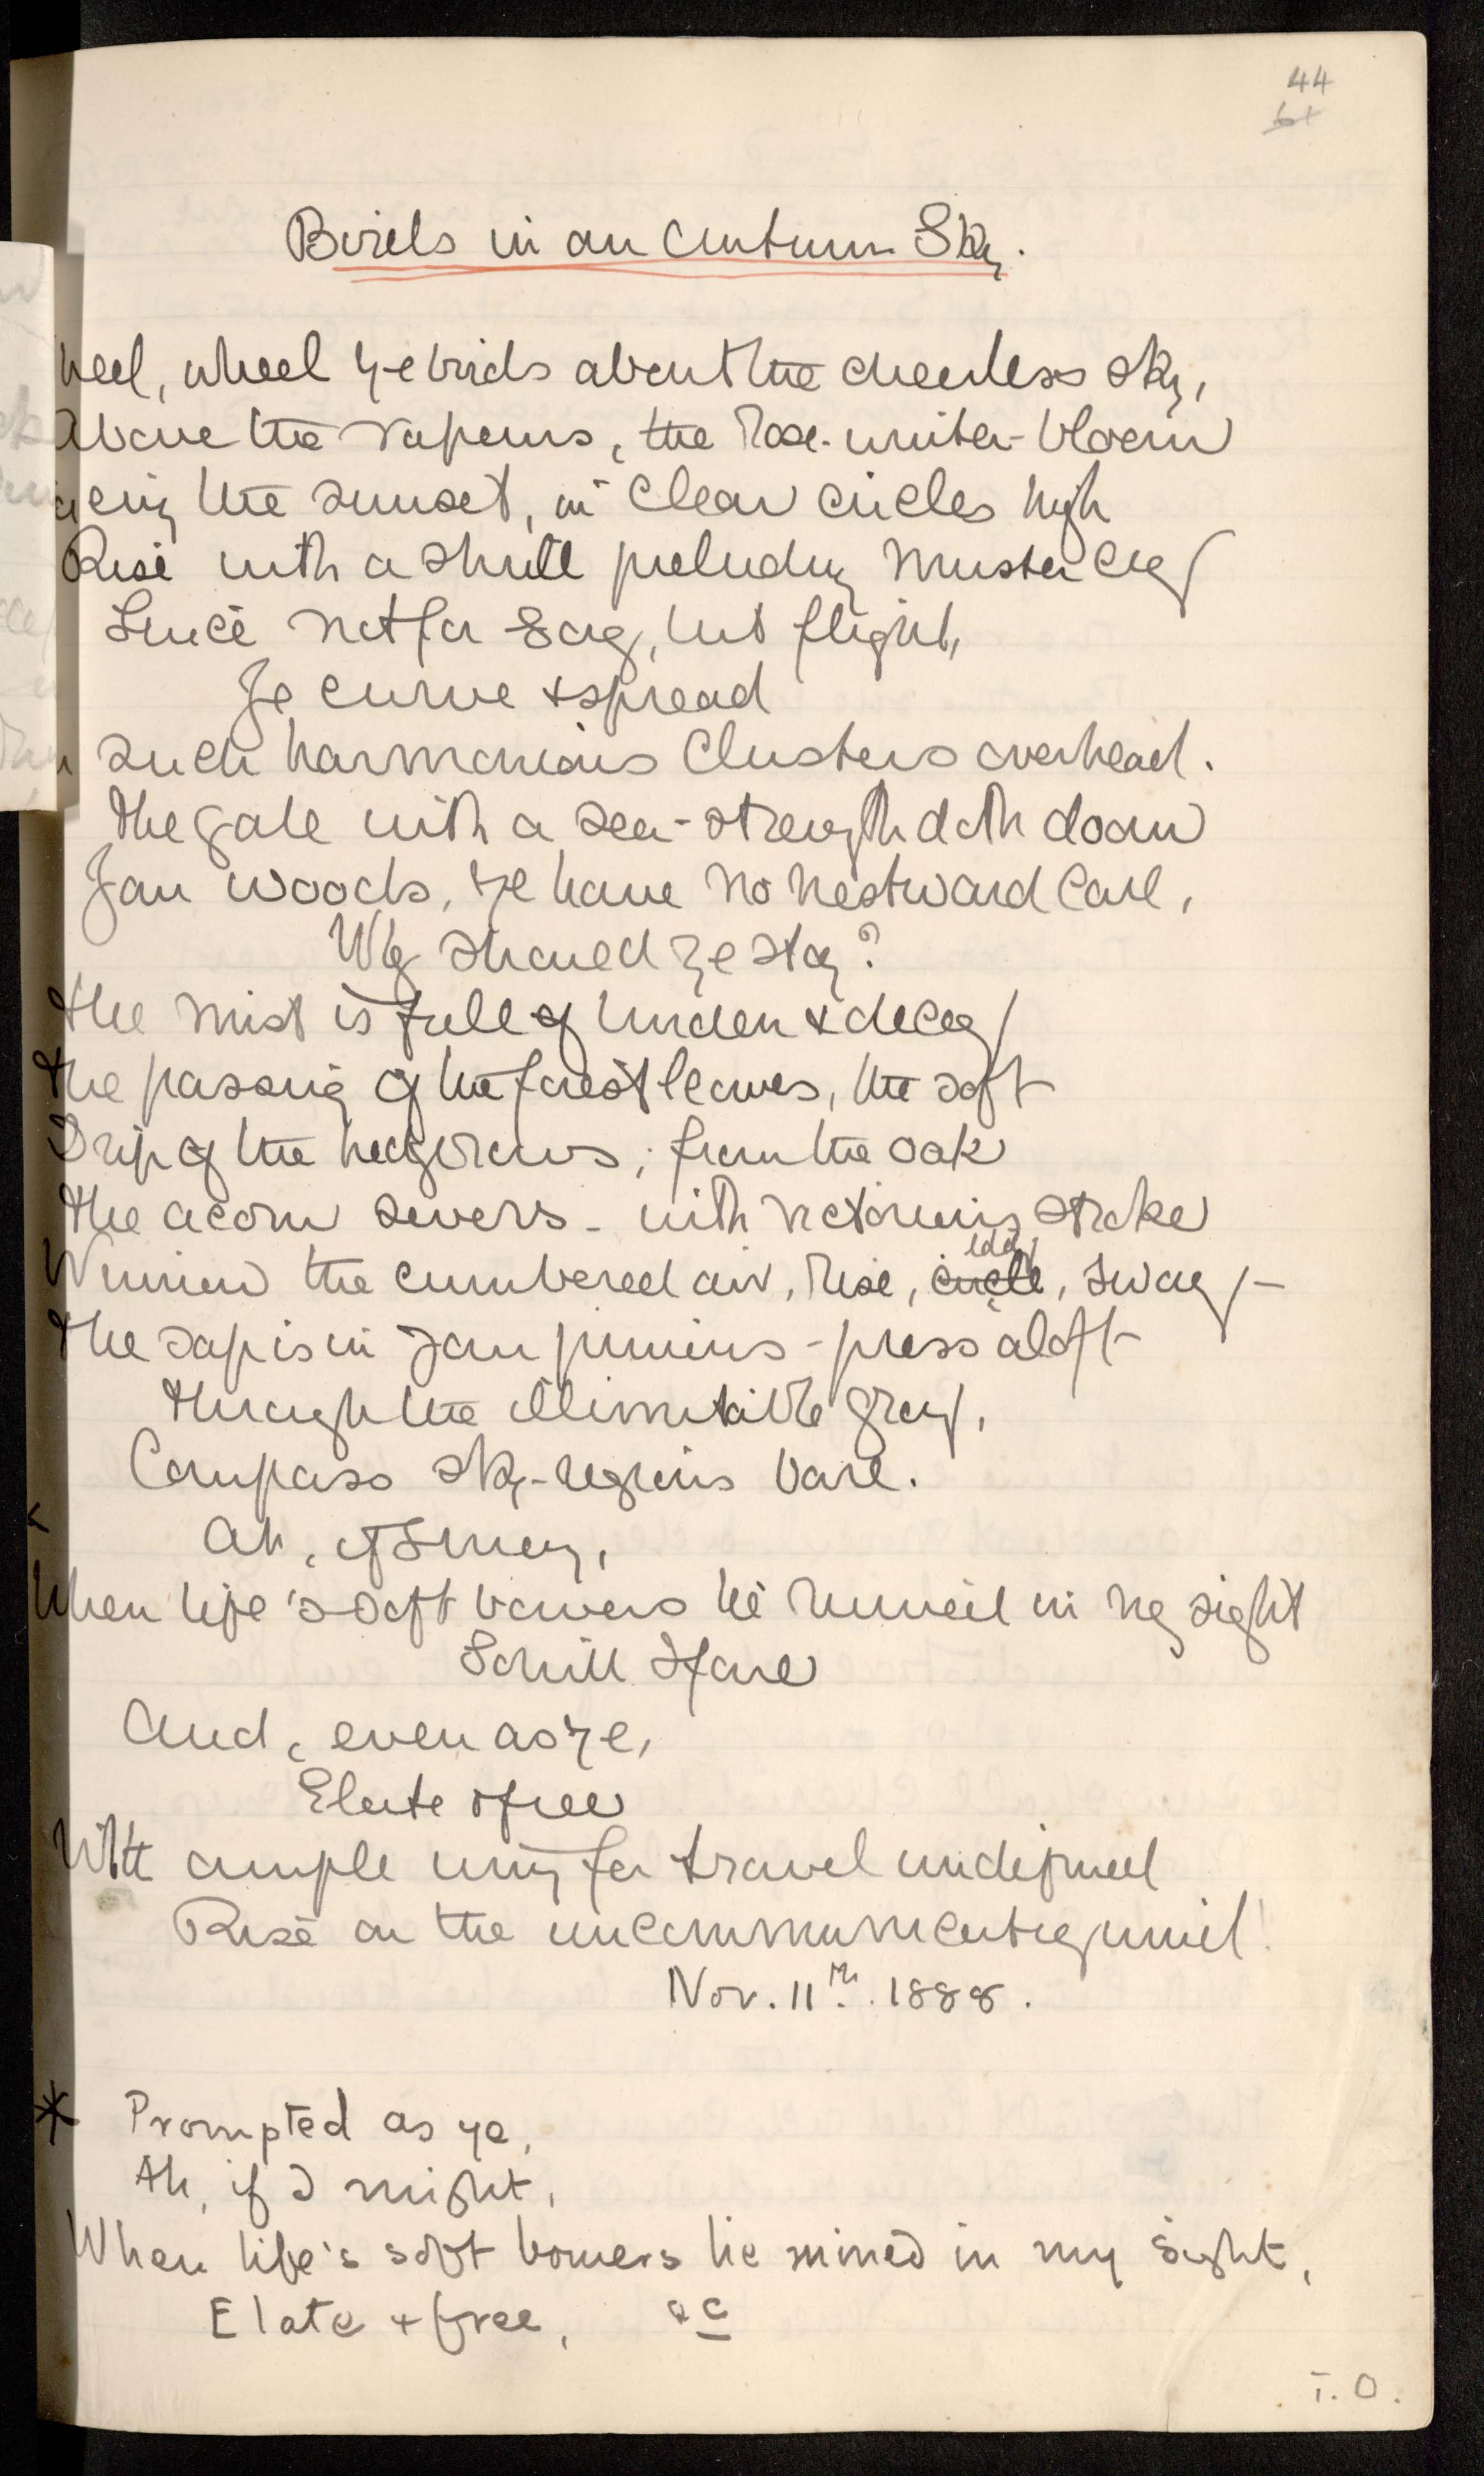 44
Birds in an Autumn Sky.
heel, wheel ye birds about the cheerless sky,
Above the vapours, the rose-winter-bloom
acing the sunset, in clear circles high
Rise with a shrill preluding muster cry
Since not for song, but flight,
Ye curve & spread
n such harmonious clusters overhead.
The gale with a sea-strength doth doom
Your woods, ye have no nestward care,
Why should ye stay?
The mist is full of burden & decay
The passing of the forest leaves, the soft
Drip of the hedgerows; from the oak
The acorn severs - with victorious stroke
eddy
Winnow the cumbered air, rise, circle, sway -
The sap is in your pinions - press aloft
Through the illimitable gray,
Compass sky-regions bare.
Ah, if I may,
When life's soft bowers lie ruined in my sight
So will I fare
And, even as ye,
Elate & free
With ample wing for travel undefined
Rise on the uncommunicating wind!
Nov. 11th. 1888.
* Prompted as ye,
Ah, if I might,
When life's soft bowers lie ruined in my sight,
Elate & free, &c
T.O.